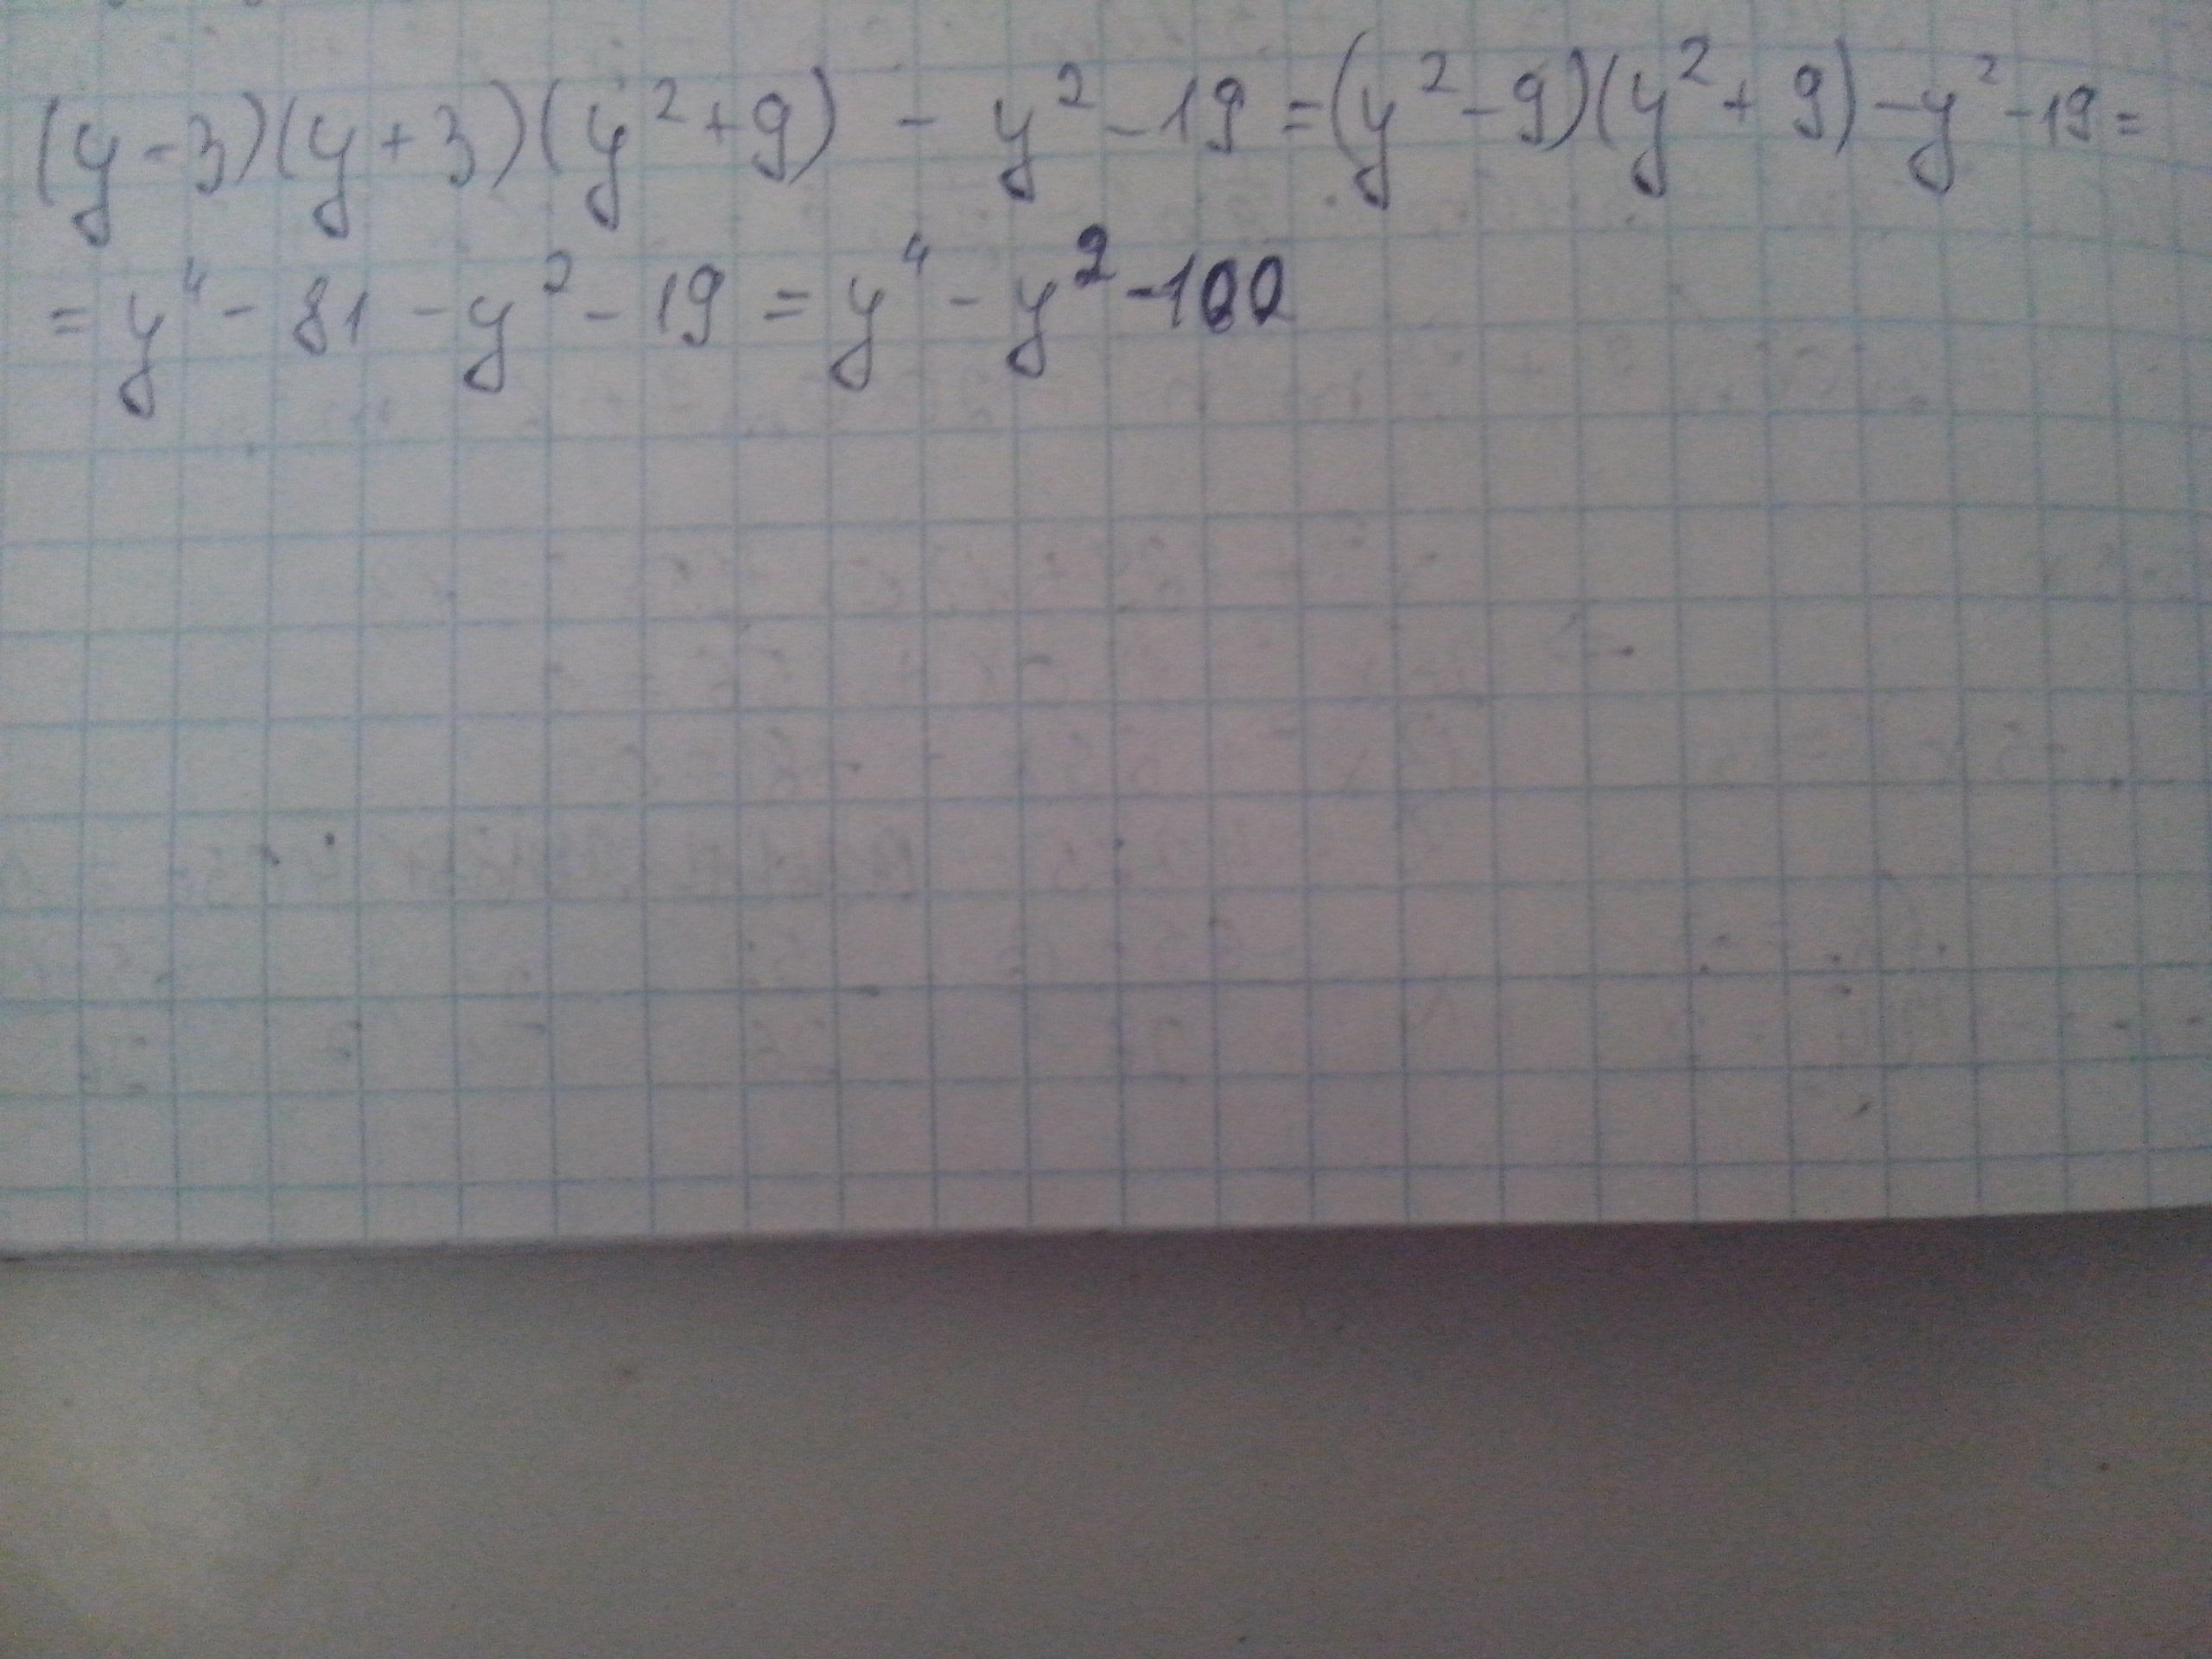 (y-3)(y+3)(y²+9) - y²-19=(y²-9)(y²+9)-y²-19=
=y⁴-81-y²-19=y⁴-y²-100